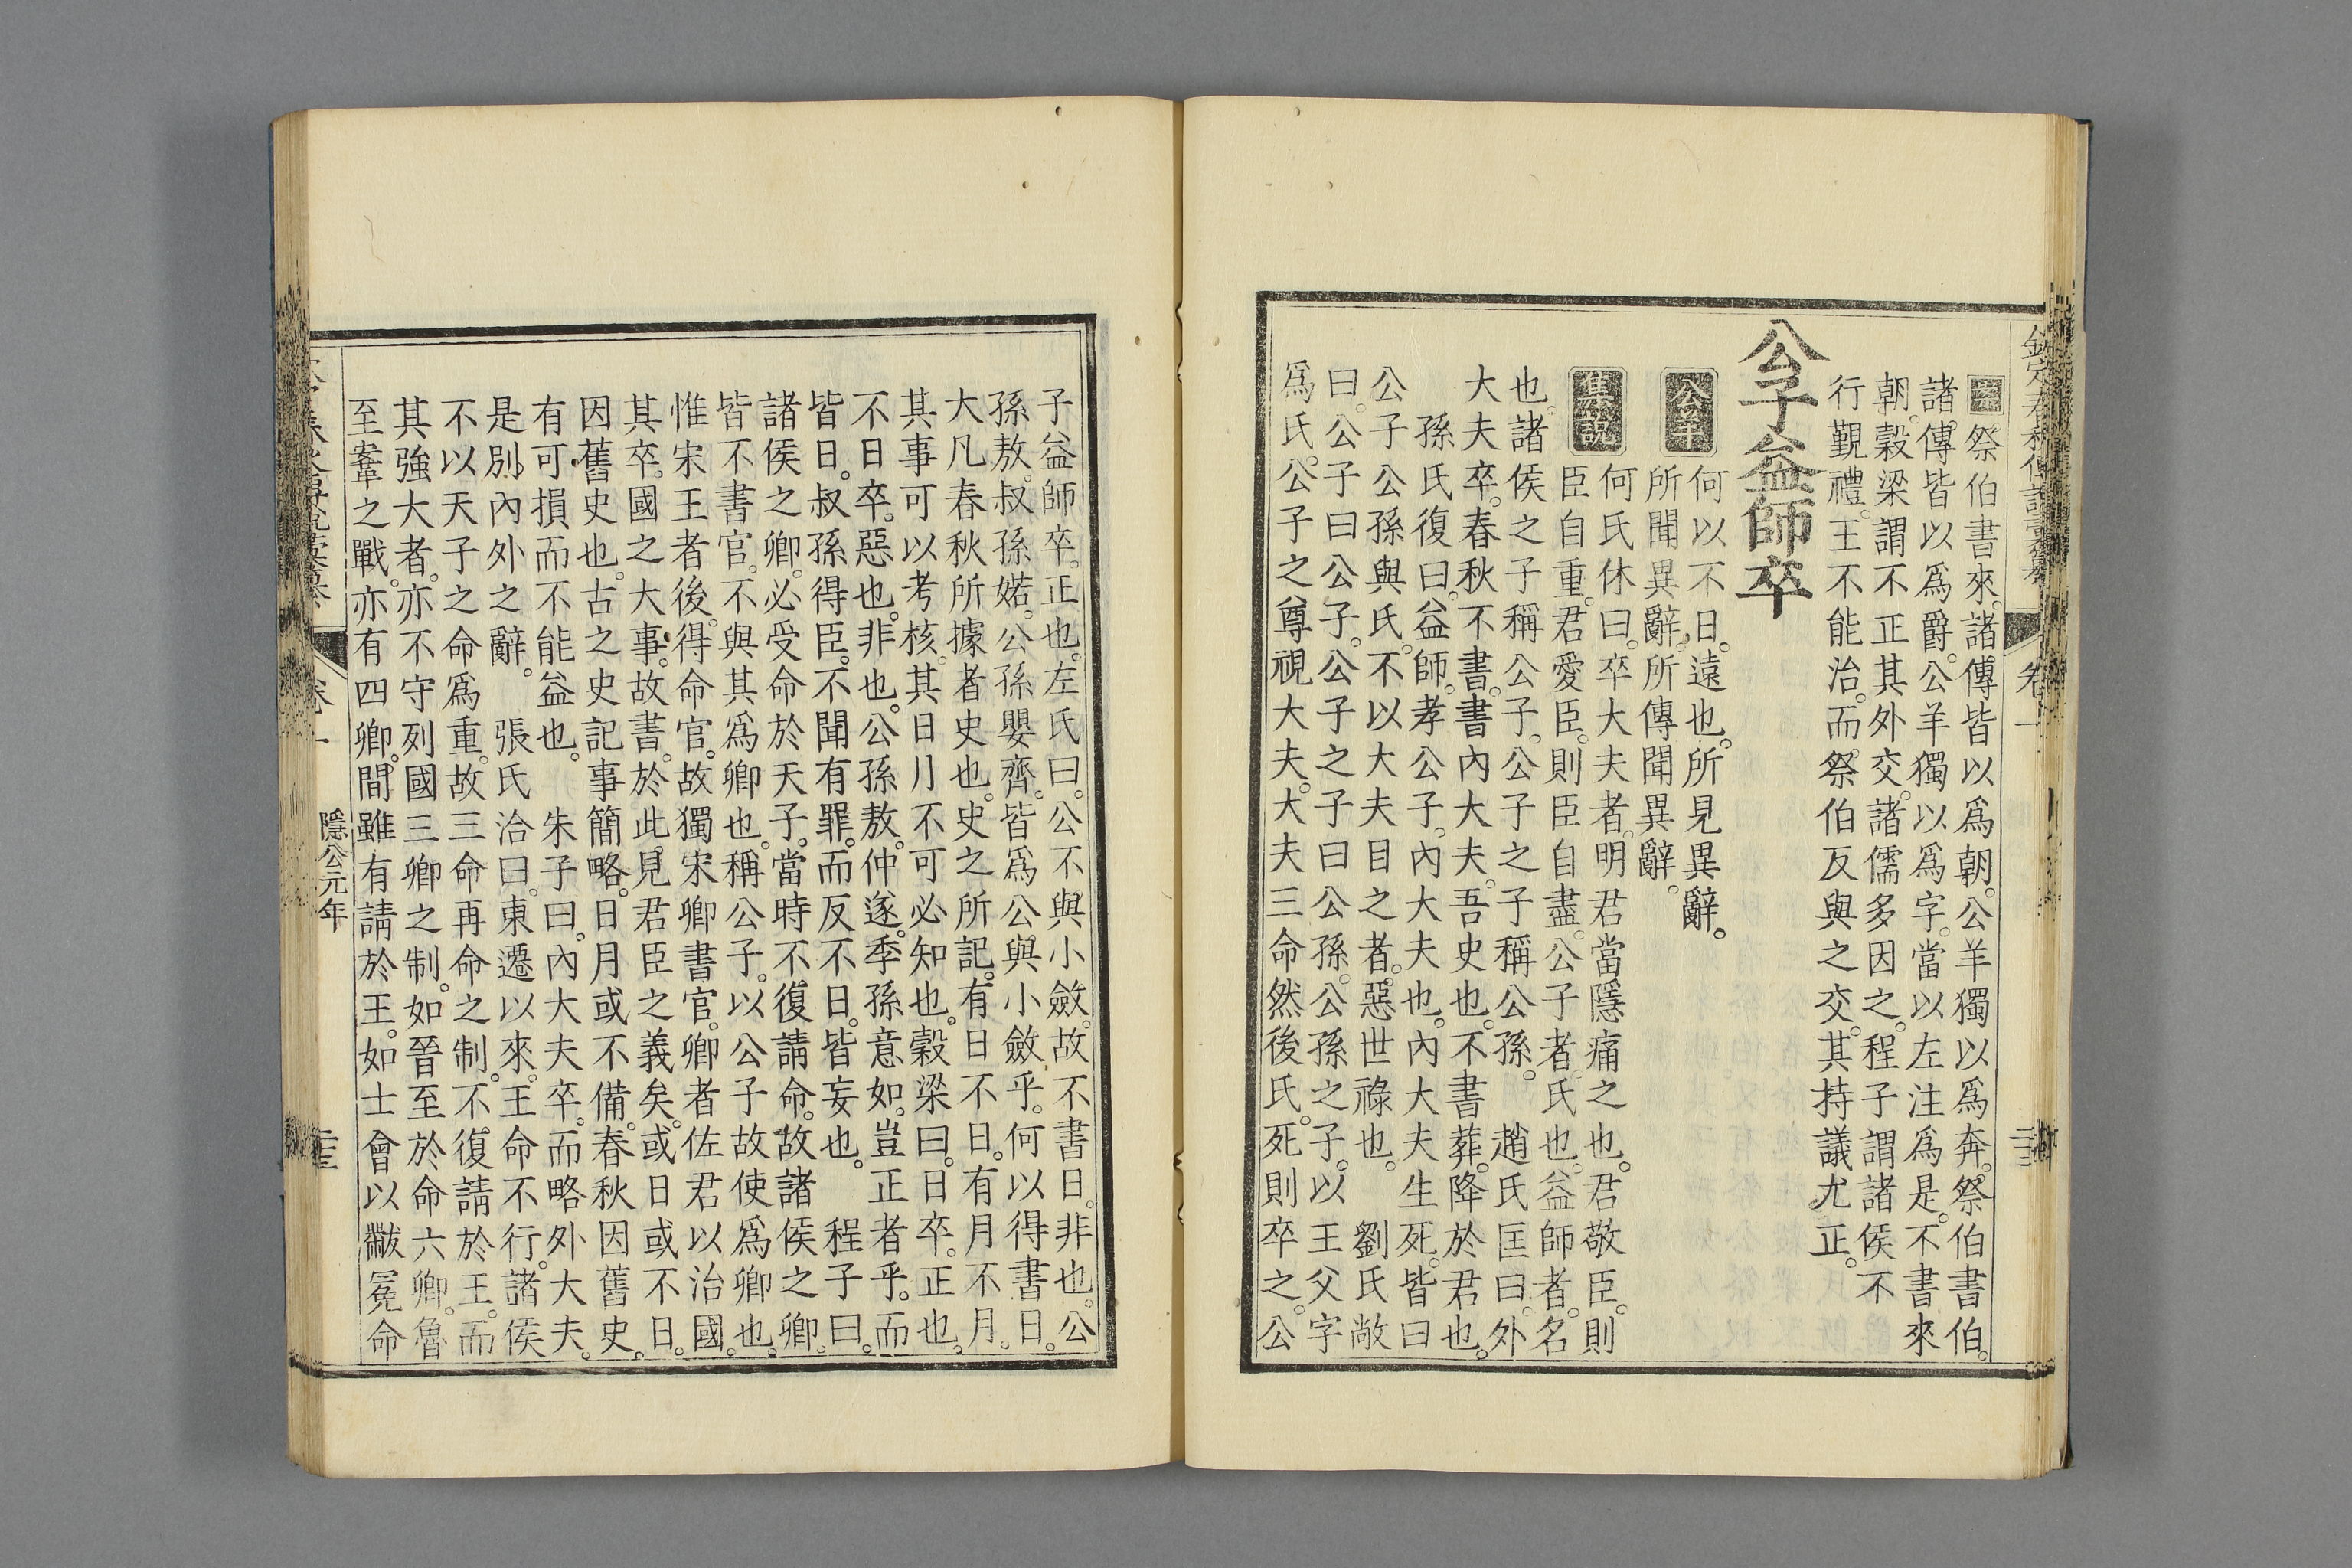 欽定春秋傳說彙纂
卷一
案祭伯書來。諸傳皆以爲朝。公羊獨以爲奔。祭伯書伯。
諸傳皆以爲爵。公羊獨以爲字。當以左注爲是。不書來
朝。穀梁謂不正其外交。諸儒多因之。程子謂諸侯不
行覲禮。王不能治。而祭伯反與之交。其持議尤正。
公子益師卒
公羊
何以不日。遠也。所見異辭。
所聞異辭。所傳聞異辭。
集說
何氏休曰。卒大夫者。明君當隱痛之也。君敬臣。則
臣自重。君愛臣。則臣自盡。公子者。氏也。益師者。名
也。諸侯之子稱公子。公子之子稱公孫。 趙氏匡曰。外
大夫卒。春秋不書。書內大夫。吾史也。不書葬。降於君也。
孫氏復曰。益師。孝公子。內大夫也。內大夫生死。皆曰
公子公孫與氏。不以大夫目之者。惡世祿也。 劉氏敞
曰。公子曰公子。公子之子曰公孫。公孫之子。以王父字
爲氏。公子之尊視大夫。大夫三命然後氏。死則卒之。公
子益師卒。正也。左氏曰。公不與小斂。故不書日。非也。公
孫敖。叔孫婼。公孫嬰齊。皆爲公。與小斂乎。何以得書日。
大凡春秋所據者史也。史之所記。有日不日。有月不月。
其事可以考核。其日月不可必知也。穀梁曰。日卒。正也。
不日卒。惡也。非也。公孫敖。仲遂。季孫意如。豈正者乎。而
皆日。叔孫得臣。不聞有罪。而反不日。皆妄也。 程子曰。
諸侯之卿。必受命於天子。當時不復請命。故諸侯之卿。
皆不書官。不與其爲卿也。稱公子。以公子故使爲卿也。
惟宋王者後。得命官。故獨宋卿書官。卿者佐君以治國。
其卒。國之大事。故書。於此見君臣之義矣。或日或不日。
因舊史也。古之史記事簡略。日月或不備。春秋因舊史。
有可損而不能益也。 朱子曰。內大夫卒。而略外大夫。
是別內外之辭。 張氏洽曰。東遷以來。王命不行。諸侯
不以天子之命爲重。故三命再命之制。不復請於王。而
其強大者。亦不守列國三卿之制。如晉至於命六卿。魯
至鞌之戰。亦有四卿。間雖有請於王。如士會以黻冕命
卷一
隱公元年